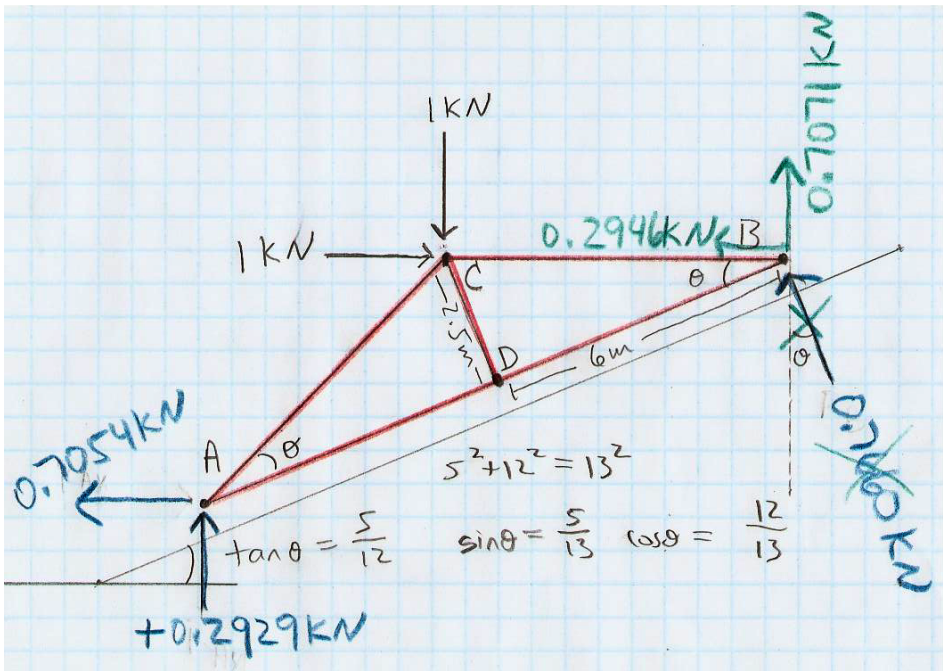 1KN
0.7071KN
1KN
0.2946KN
B
C
θ
2.5m
D
6m
θ
A
θ
0.7054KN
0.7660KN
5²+12²=13²
tanθ = 5/12 sinθ = 5/13 cosθ = 12/13
+0.2929KN